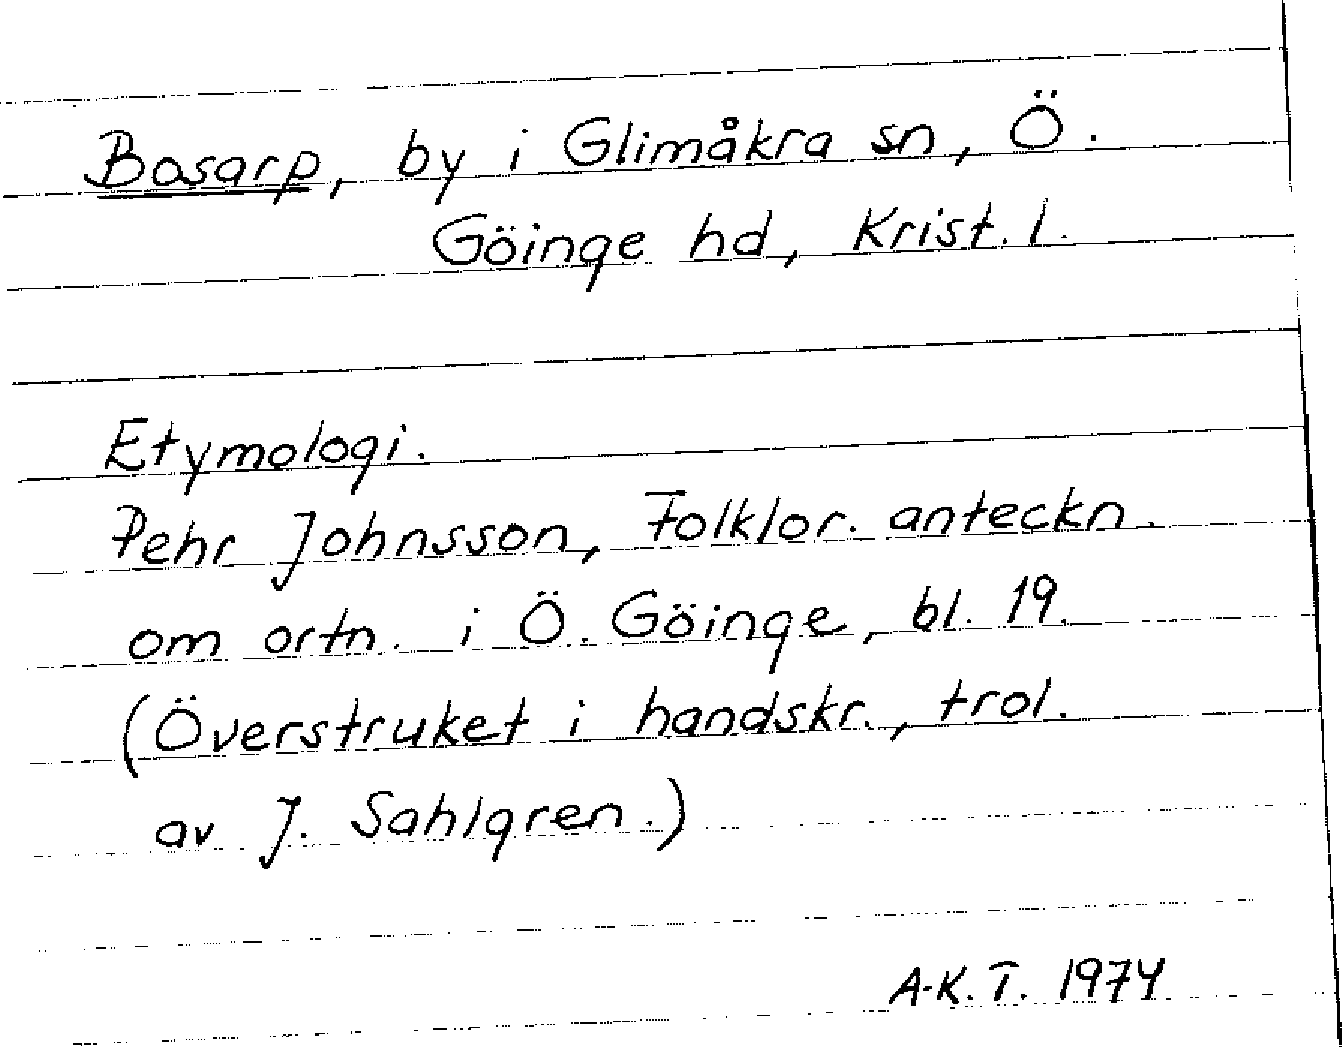 Bosarp, by i Glimåkra sn, Ö.
Göinge hd, Krist. l.
Etymologi.
Pehr Johnsson, Folklor. anteckn.
om ortn. i Ö. Göinge, bl. 19.
(Överstruket i handskr., trol.
av J. Sahlgren.)
A-K. T. 1974